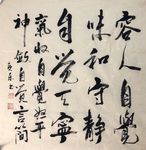 容人自覺
味和守静
自觉天寧
氣收自覺怒平
神敛自覺言簡